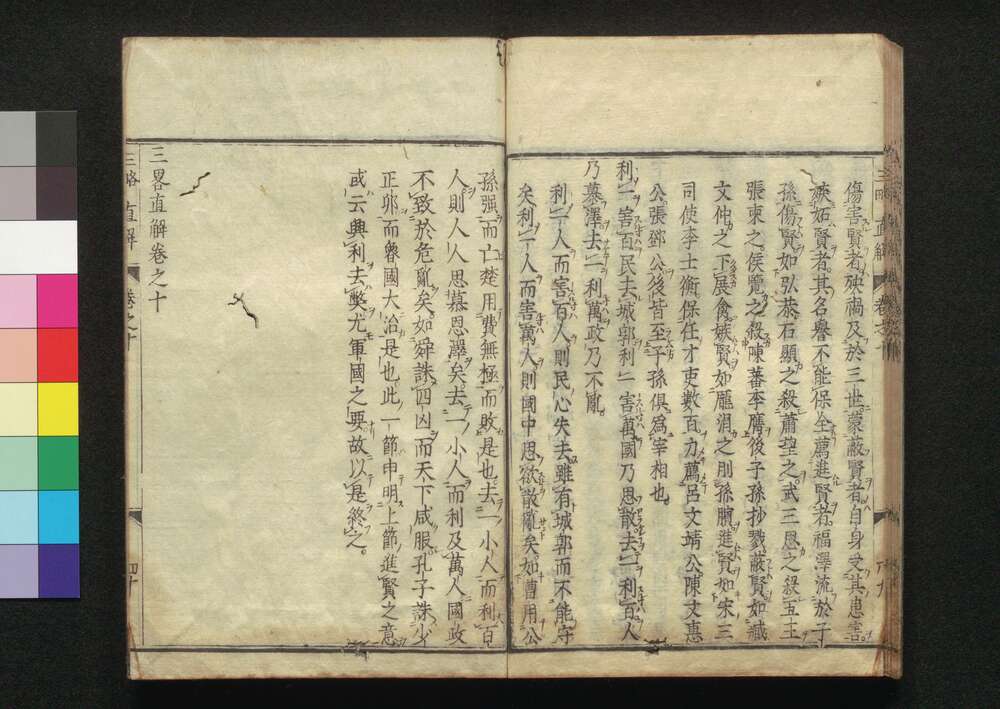 傷害賢者殃禍及於三世蒙蔽賢者自身受其患害
嫉妬賢者其名譽不能保全薦進賢者福澤流於子
孫傷賢如弘恭石顯之殺蕭望之武三思之殺五王
張柬之侯覽之殺陳蕃李膺後子孫抄戮蔽賢如臧
文仲之下展禽嫉賢如龐涓之刖孫臏進賢如宋三
司使李士衡保任才吏數百力薦呂文靖公陳文惠
公張鄧公後皆至子孫俱爲宰相也
利一害百民去城郭利一害萬國乃思散去一利百人
乃慕澤去一利萬政乃不亂
利一人而害百人則民心失去雖有城郭而不能守
矣利一人而害萬人則國中思欲散亂矣如曹用公
孫强而亡楚用費無極而敗是也去一小人而利百
人則人人思慕恩澤矣去一小人而利及萬人國政
不致於危亂矣如舜誅四凶而天下咸服孔子誅少
正卯而魯國大治是也此一節申明上節進賢之意
或云興利去弊尤軍國之要故以是終之
三畧直解卷之十
三略直解
卷之十
四十